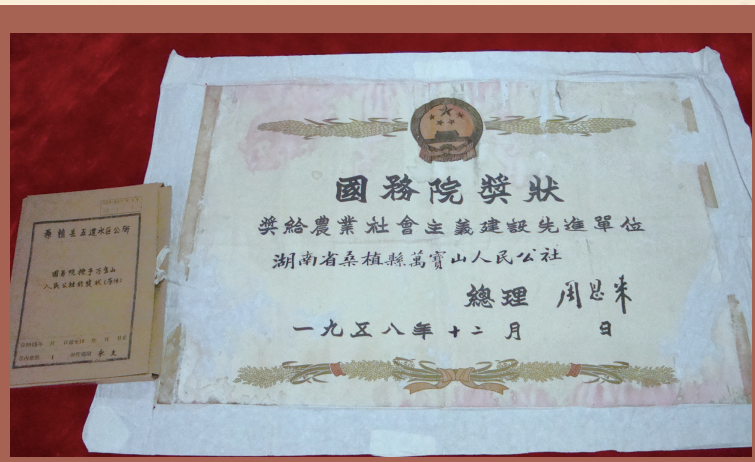 國務院獎狀
獎給農業社會主義建設先進單位
湖南省桑植縣萬寶山人民公社
總理 周恩来
一九五八年十二月 日
桑植县五道水区公所
國务院授予万宝山
人民公社的奖状(原件)
永久